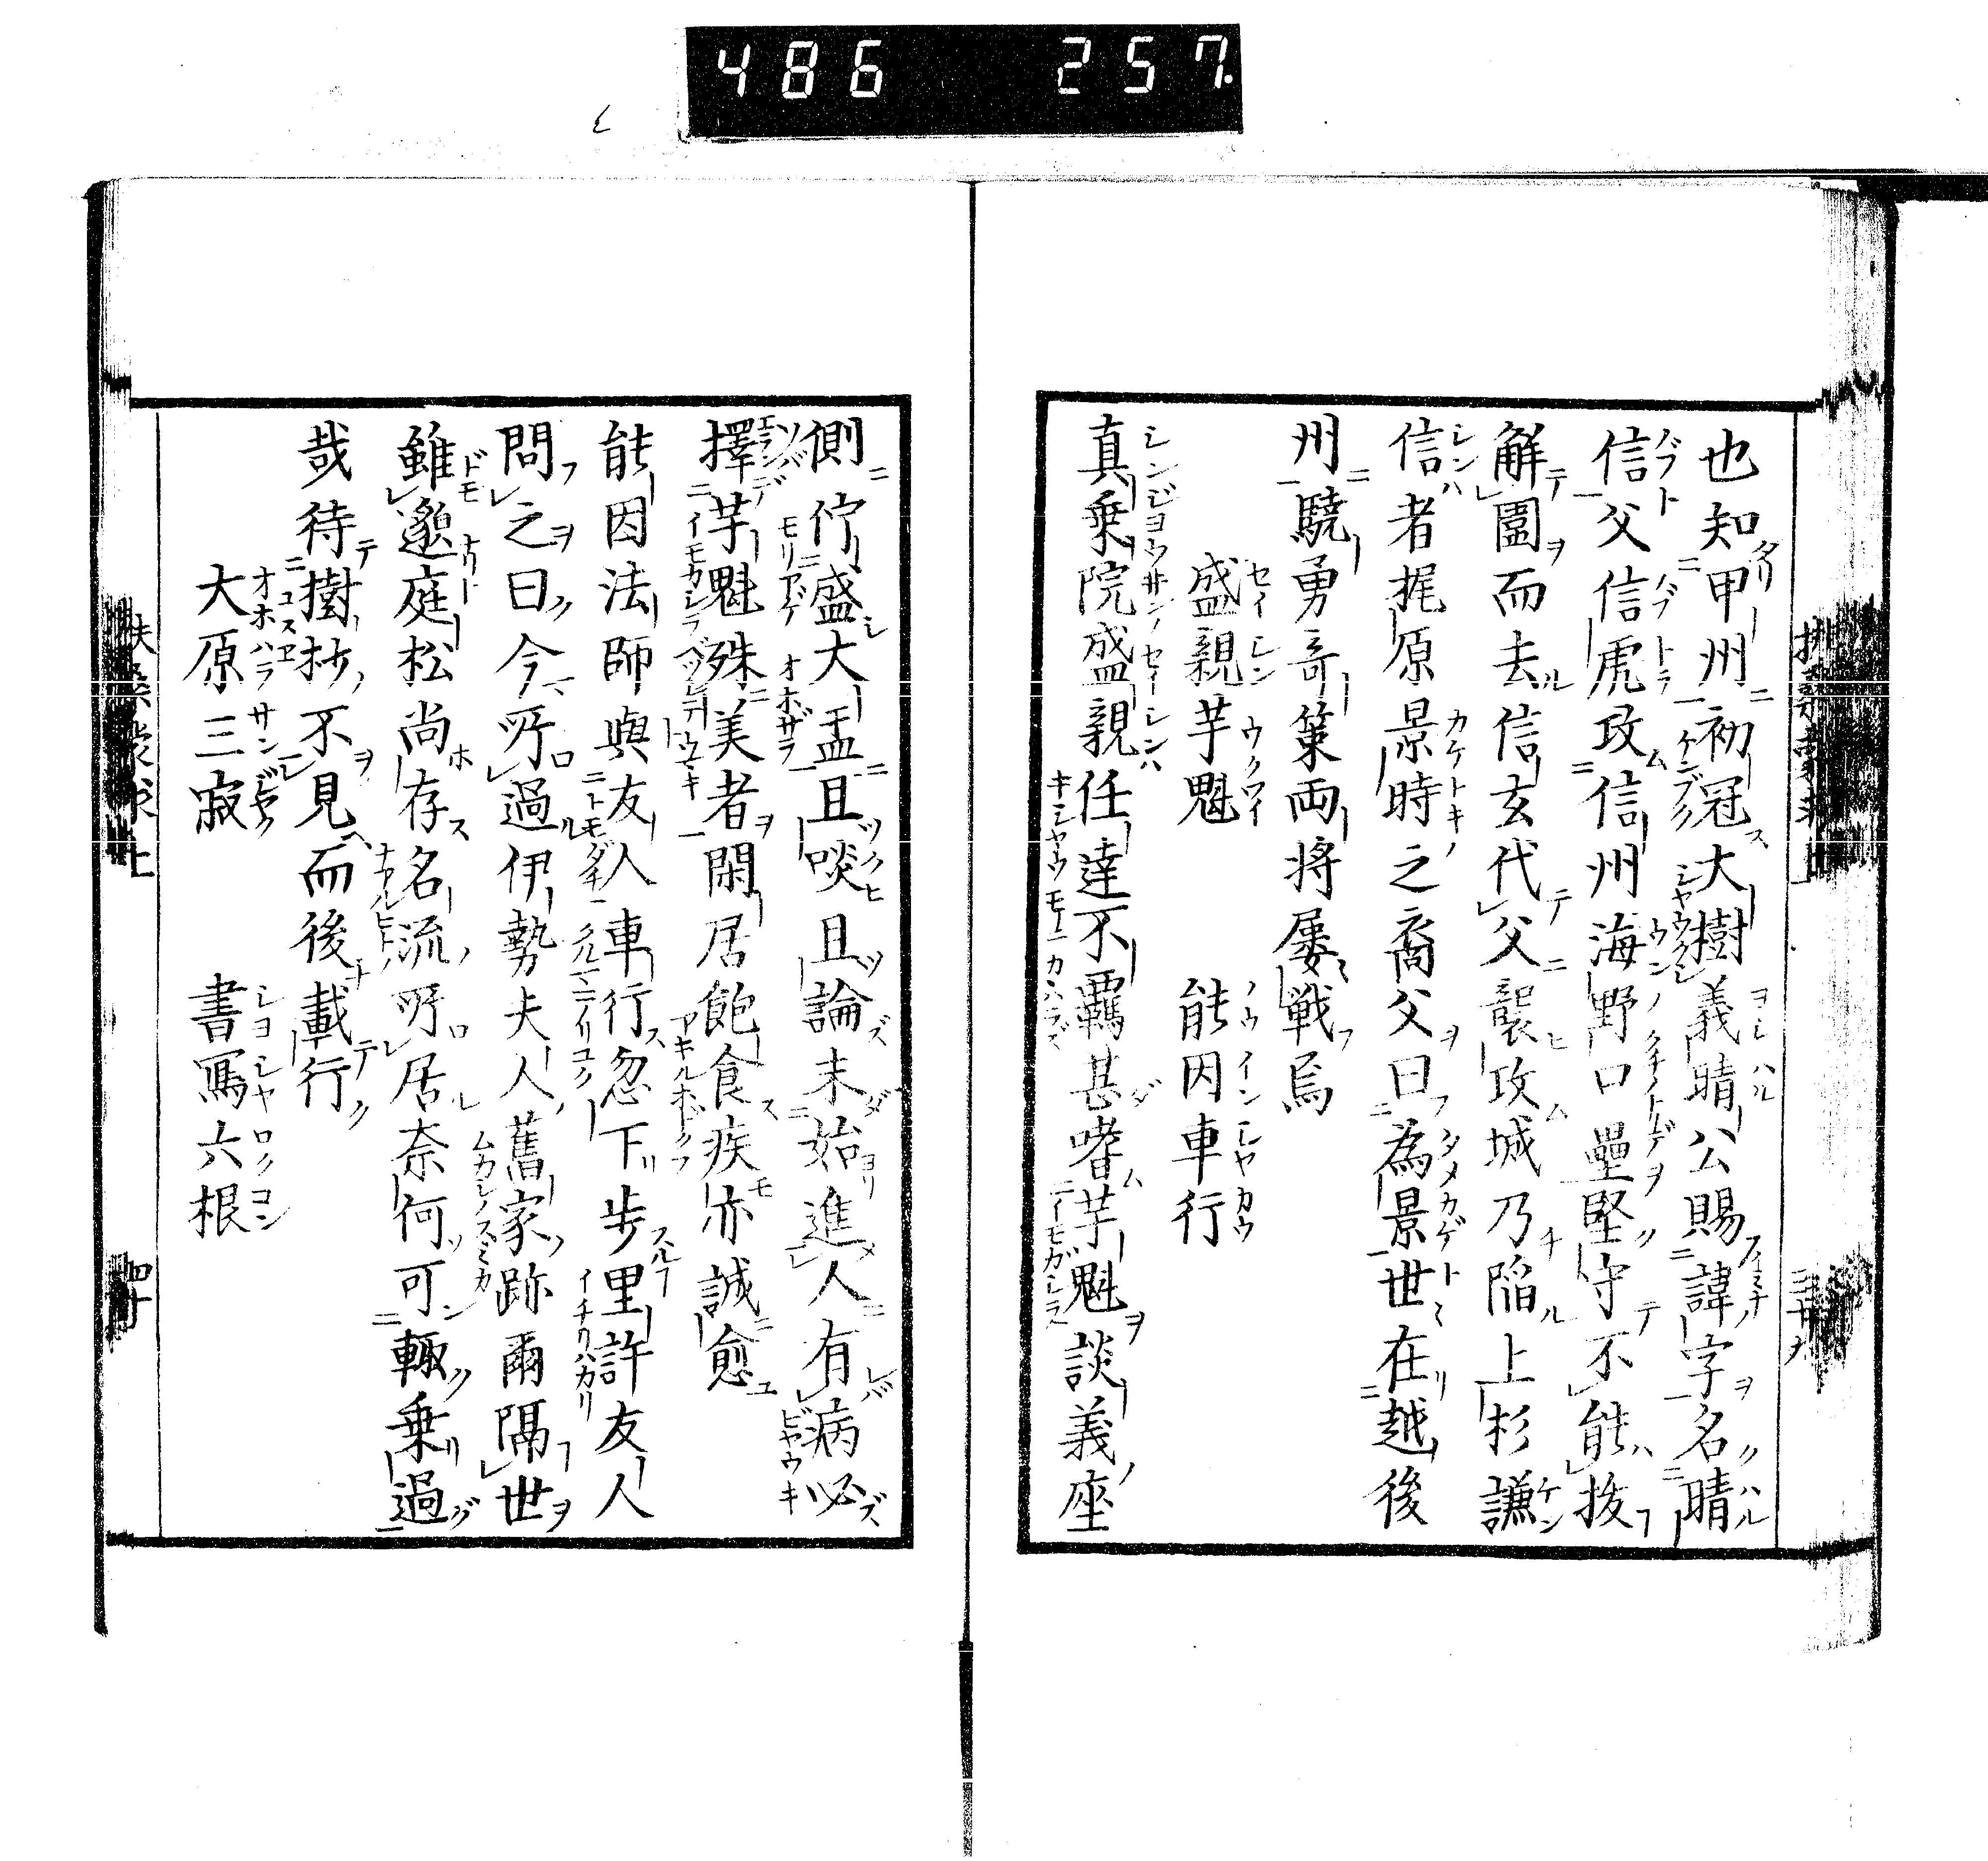 486 257.
也知甲州初冠大樹義晴公賜諱字名晴
信父信虎攻信州海野口壘堅守不能拔
解圍而去信玄代父襲攻城乃陷上杉謙
信者梶原景時之裔父曰為景世在越後
州驍勇奇策両将屡戦焉
盛親芋魁 能因車行
真乗院盛親任達不羈甚嗜芋魁談義座
側佇盛大盂且啖且論未始進人有病必
擇芋魁殊美者閑居飽食疾亦誠愈
能因法師與友人車行忽下步里許友人
問之曰今所過伊勢夫人舊家跡爾隔世
雖邈庭松尚存名流所居奈何可輙乗過
哉待樹抄不見而後載行
大原三寂 書寫六根
四十